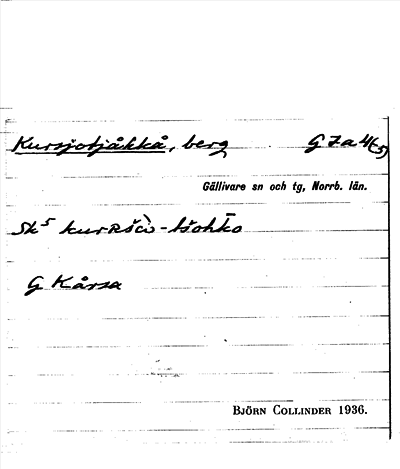 Kursjotjåkkå, berg G 7a4(5)
Gällivare sn och tg, Norrb. län.
Sk⁵ -tšohko
G Kårsa
BJÖRN COLLINDER 1936.